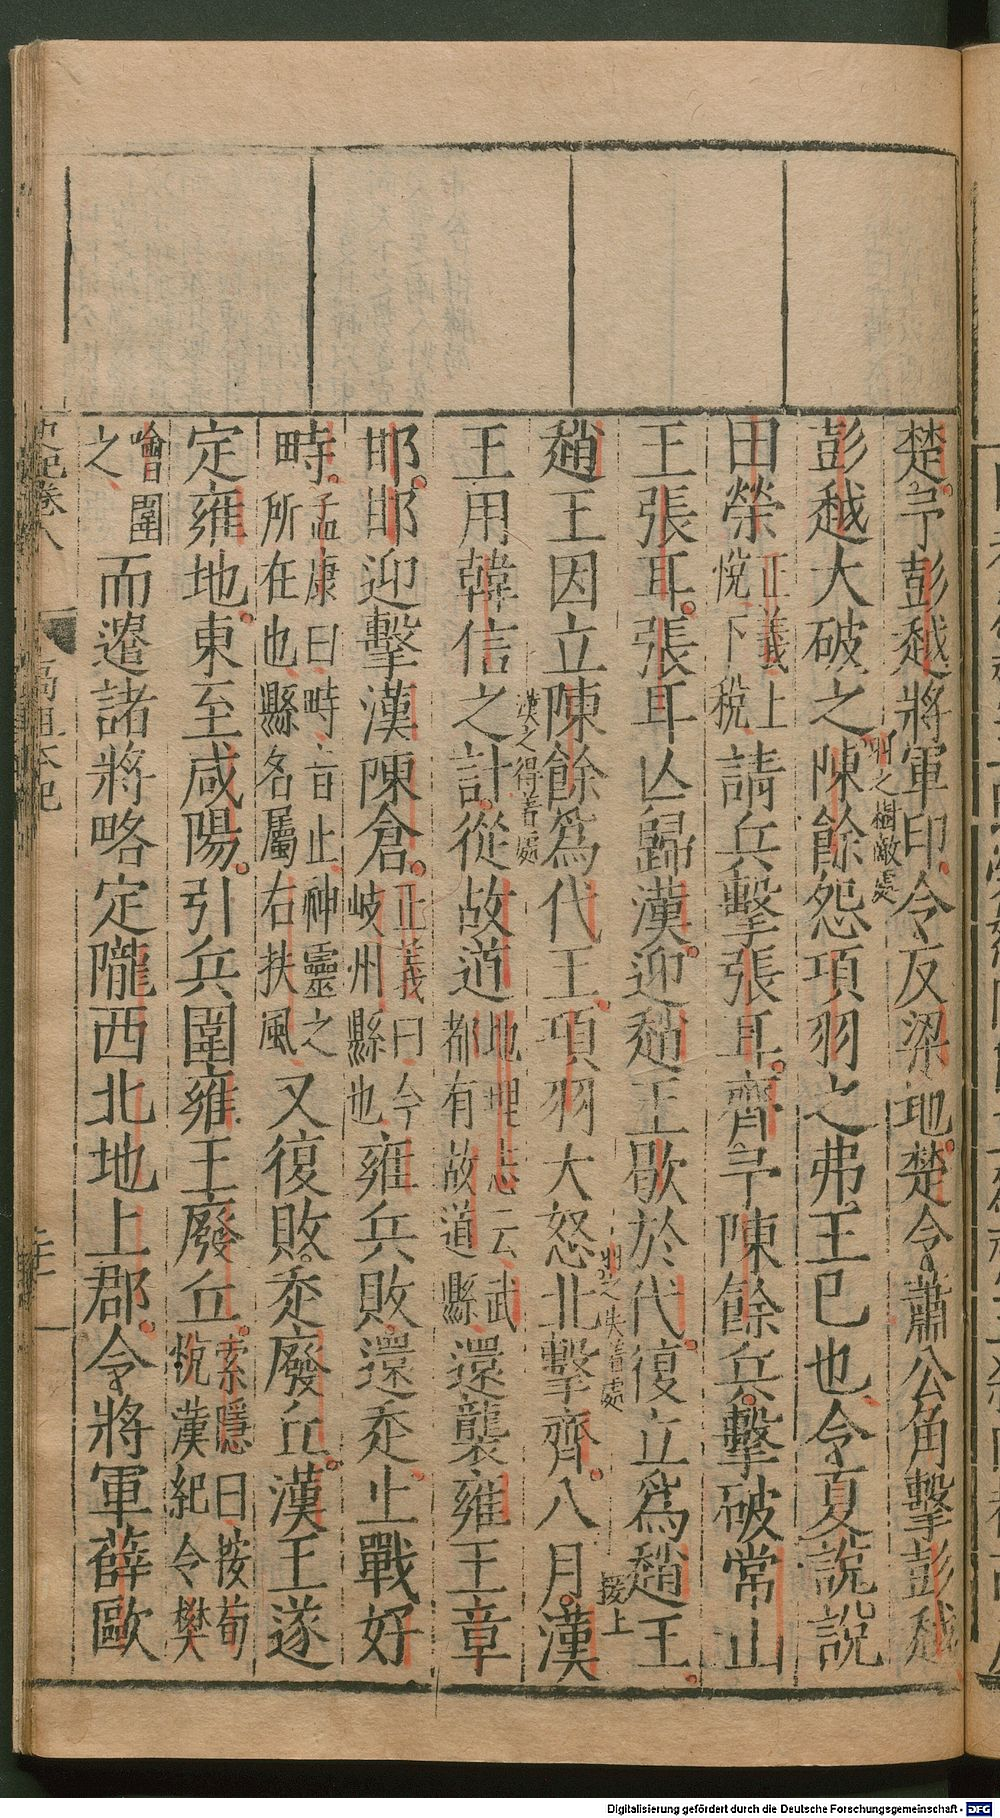 楚予彭越將軍印令反梁地楚令蕭公角擊彭越
彭越大破之陳餘怨項羽之弗王已也令夏說說
羽之樹敵處
田榮正義上悅下稅請兵擊張耳齊予陳餘兵擊破常山
王張耳張耳亾歸漢迎趙王歇於代復立爲趙王
羽之失着處
接上
趙王因立陳餘爲代王項羽大怒北擊齊八月漢
漢之得着處
王用韓信之計從故道地理志云武都有故道縣還襲雍王章
邯邯迎擊漢陳倉正義曰今岐州縣也雍兵敗還走止戰好
畤孟康曰畤音止神靈之所在也縣名屬右扶風又復敗走廢丘漢王遂
定雍地東至咸陽引兵圍雍王廢丘索隱曰按荀悅漢紀令樊
噲圍之而遣諸將略定隴西北地上郡令將軍薛歐
史記卷八
高祖本紀
Digitalisierung gefördert durch die Deutsche Forschungsgemeinschaft - DFG